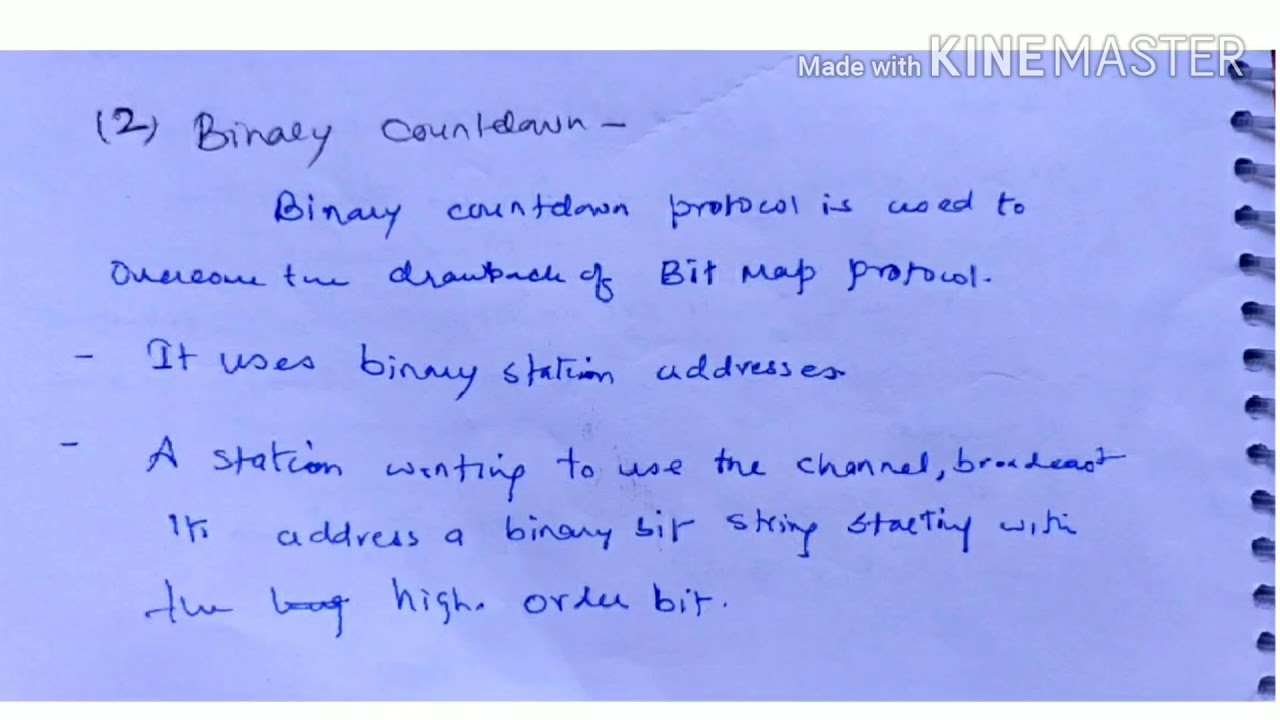 Made with KINEMASTER
(2) Binary Countdown -
Binary countdown protocol is used to
Overcome the drawback of Bit Map protocol.
- It uses binary station addresses
- A station wanting to use the channel, broadcast
Its address a binary bit string starting with
the high. order bit.